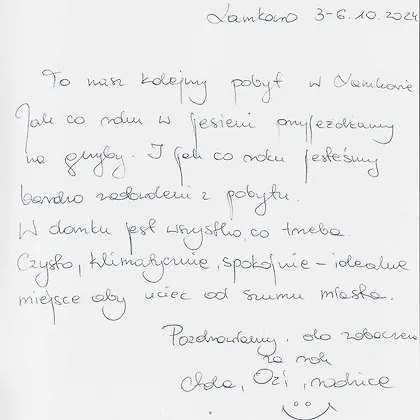 Łamkowo 3-6.10.2024
To nasz kolejny pobyt w Łamkowie
Jak co roku w jesieni przyjeżdżamy
na grzyby. I jak co roku jesteśmy
bardzo zadowoleni z pobytu.
W domku jest wszystko, co trzeba
Czysto, klimatycznie, spokojnie - idealne
miejsce aby uciec od szumu miasta.
Pozdrawiamy. do zobaczenia
za rok
i rodzice